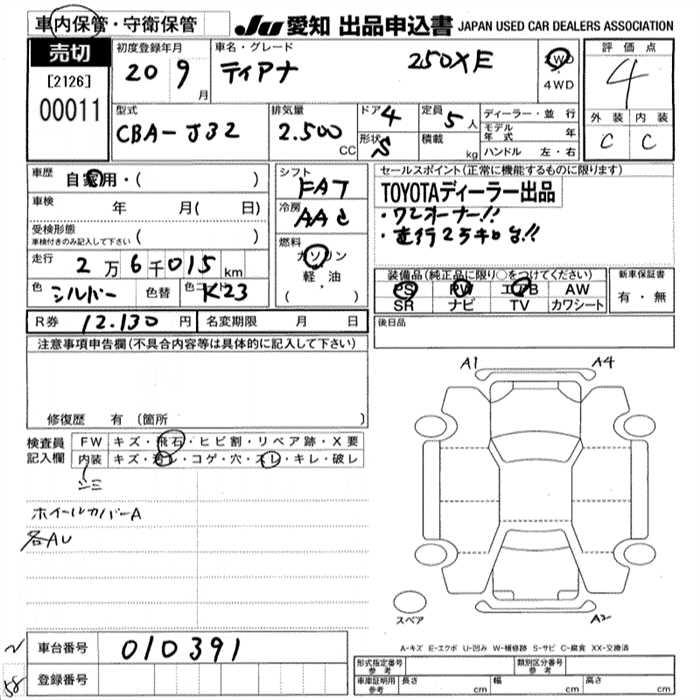 車内保管・守衛保管
JU 愛知 出品申込書 JAPAN USED CAR DEALERS ASSOCIATION
売切
[2126]
00011
初度登録年月
20 9月
車名・グレード
ティアナ 250XE
2WD
4WD
評価点
4
外装 内装
C C
型式
CBA-J32
排気量
2.500 CC
ドア 4
形状 S
定員 5人
積載 kg
ディーラー・並行
モデル年式 年
ハンドル 左・右
車歴 自家用・( )
車検 年 月( 日)
受検形態
車検付きのみ記入して下さい ( )
走行 2万6千015km
色 シルバー 色替 色コード K23
シフト FAT
冷房 AAC
燃料
ガソリン
軽・油
( )
セールスポイント(正常に機能するものに限ります)
TOYOTAディーラー出品
・ワンオーナー!!
・走行25キロ台!!
装備品(純正品に限り○をつけてください)
PS PW エアB AW
SR ナビ TV カワシート
新車保証書
有・無
R券 12.130円 名変期限 月 日
後日品
注意事項申告欄(不具合内容等は具体的に記入して下さい)
修復歴 有 (箇所 )
検査員記入欄
FW キズ・飛石・ヒビ割・リペア跡・X要
内装 キズ・汚レ・コゲ・穴・スレ・キレ・破レ
シミ
ホイールカバーA
各AU
A1 A4
スペア
A2
車台番号 010391
登録番号
A-キズ E-エクボ U-凹み W-補修跡 S-サビ C-腐食 XX-交換済
形式指定番号
参考
類別区分番号
参考
車庫証明用
参考
長さ cm 幅 cm 高さ cm